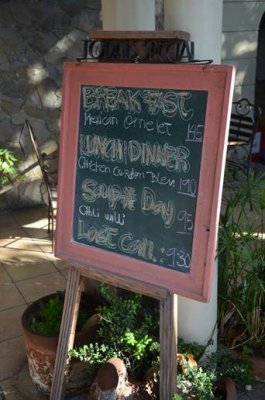 TODAY'S SPECIAL
BREAKFAST
Mexican Omelet 145
LUNCH DINNER
Chicken Gordon Bleu 190
Soup of Day 95
Chili
Last Call: 9:30